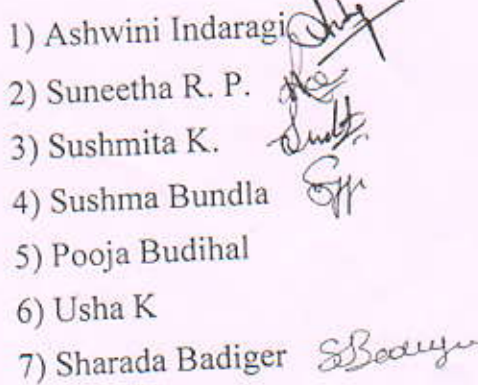 1) Ashwini Indaragi
2) Suneetha R. P.
3) Sushmita K.
4) Sushma Bundla
5) Pooja Budihal
6) Usha K
7) Sharada Badiger